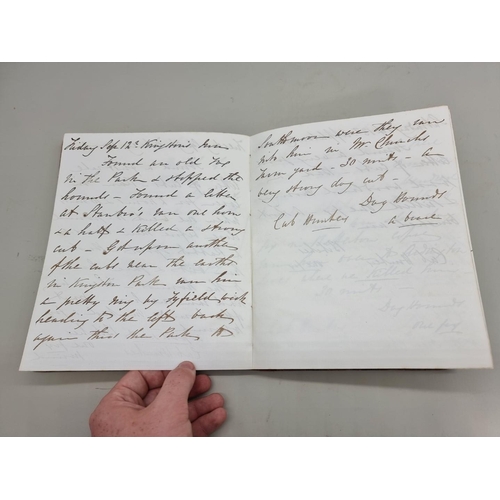 Friday Sep. 12th Kingston Inn
Found an old Dog
in the Park & stopped the
hounds - Found a litter
at Stanbro's ran one hour
& a half & killed a strong
cub - Got upon another
of the cubs near the earths
in Kingston Park ran him
a pretty ring by Tyfield wick
heading to the left back
again thro' the Park to
Southmoor where they ran
into him in Mr. Church's
farm yard - 30 minits - a
very strong dog cub -
Dog Hounds
Cub Hunting
a brace
Dog Hounds